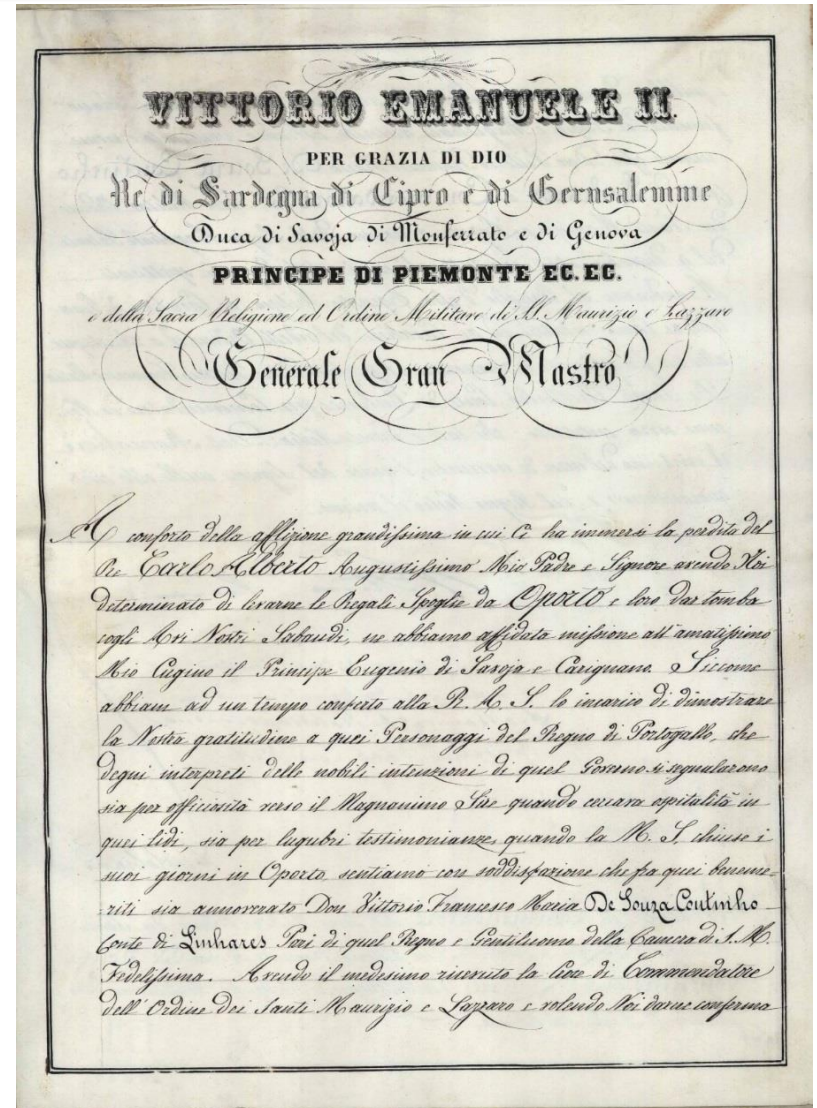 VITTORIO EMANUELE II.
PER GRAZIA DI DIO
Re di Sardegna di Cipro e di Gerusalemme
Duca di Savoja di Monferrato e di Genova
PRINCIPE DI PIEMONTE EC. EC.
e della Sacra Religione ed Ordine Militare de' SS. Maurizio e Lazzaro
Generale Gran Mastro
A conforto della afflizione grandissima in cui Ci ha immersi la perdita del
Re Carlo Alberto Augustissimo Mio Padre e Signore avendo Noi
determinato di levarne le Regali Spoglie da Oporto e loro dar tomba
cogli Avi Nostri Sabaudi, ne abbiamo affidata missione all'amatissimo
Mio Cugino il Principe Eugenio di Savoja e Carignano. Siccome
abbiam ad un tempo conferto alla R. A. S. lo incarico di dimostrare
la Nostra gratitudine a quei Personaggi del Regno di Portogallo, che
degni interpreti delle nobili intenzioni di quel Governo si segnalarono
sia per officiosità verso il Magnanimo Sire quando cercava ospitalità in
quei lidi, sia per lugubri testimonianze, quando la M. S. chiuse i
suoi giorni in Oporto sentiamo con soddisfazione che fra quei beneme-
riti sia annoverato Don Vittorio Francesco Maria De Souza Coutinho
Conte di Linhares Pari di quel Regno e Gentiluomo della Camera di S. M.
Fedelissima. Avendo il medesimo ricevuto la Croce di Commendatore
dell'Ordine dei Santi Maurizio e Lazzaro e volendo Noi darne conferma